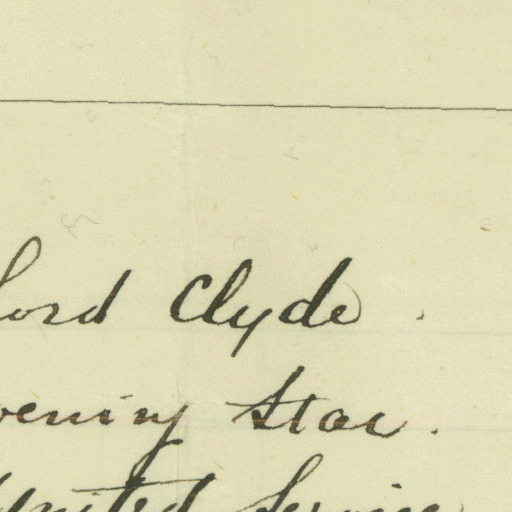 Lord Clyde.
vening Star.
United Service